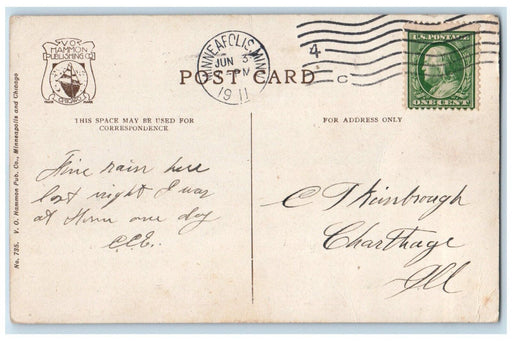 V.O.
HAMMON
PUBLISHING CO
CHICAGO
TRADE MARK
MINNEAPOLIS, MINN.
JUN 3
PM
1911
4
C
U.S. POSTAGE
ONE CENT
POST CARD
THIS SPACE MAY BE USED FOR
CORRESPONDENCE
FOR ADDRESS ONLY
Fine rain here
last night I was
at Home one day
C.C.E.
C T Kimbrough
Charthage
Ill
No. 735. V. O. Hammon Pub. Co., Minneapolis and Chicago